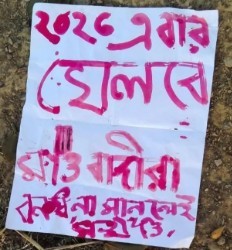 ২০২৬ এ বার
খেলবে
মাওবাদীরা
না মানলেই